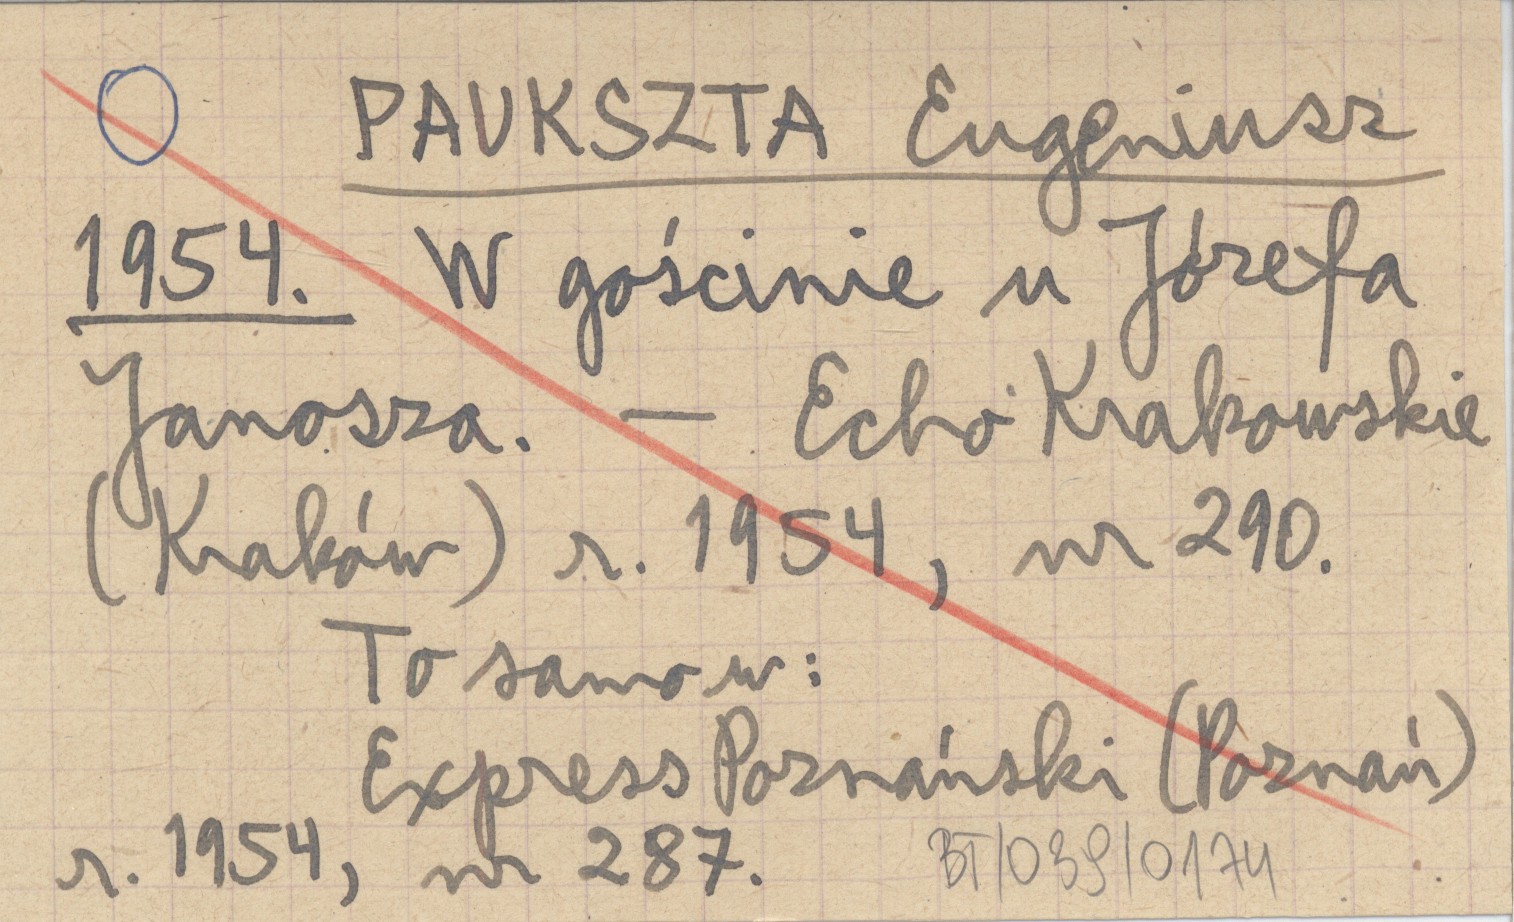 PAUKSZTA Eugeniusz
1954. W gościnie u Józefa
Janosza. — Echo Krakowskie
(Kraków) r. 1954, nr 290.
To samo w:
Express Poznański (Poznań)
r. 1954, nr 287.
BT/039/0174